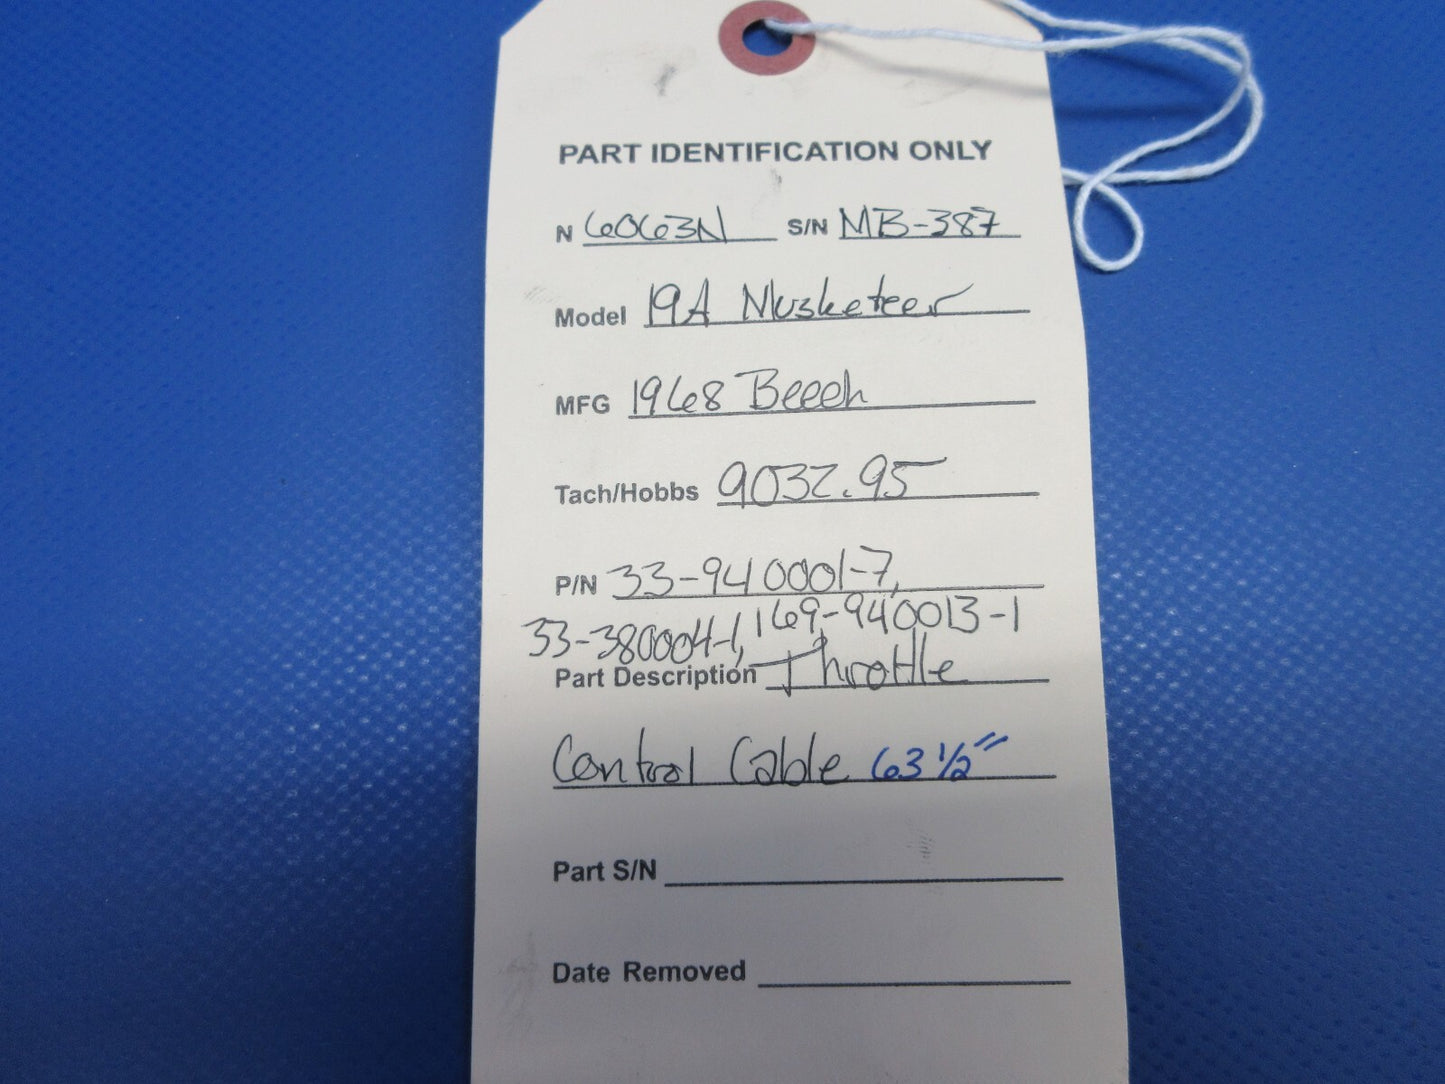 PART IDENTIFICATION ONLY
N 6063N S/N MB-387
Model 19A Musketeer
MFG 1968 Beech
Tach/Hobbs 9032.95
P/N 33-940001-7,
33-380004-1, 169-940013-1
Part Description Throttle
Control Cable 63 1/2"
Part S/N
Date Removed